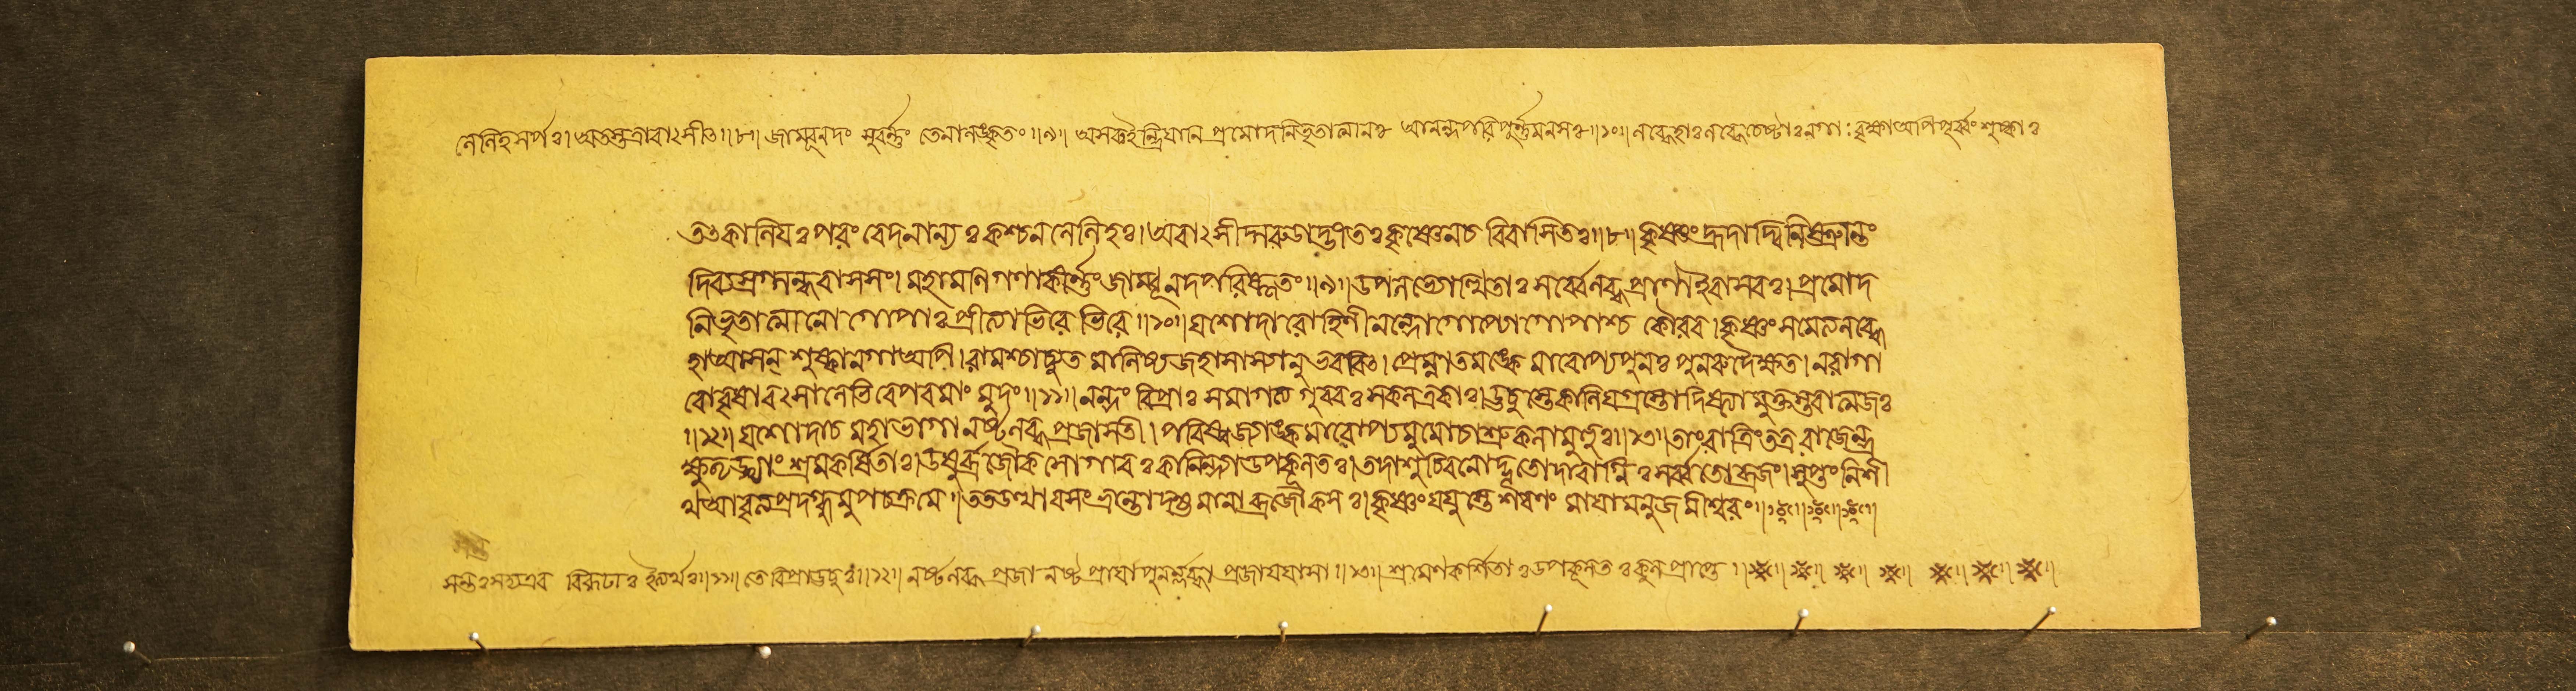 লেলিহঃ সর্পঃ। অতস্তত্রাবাৎসীৎ॥৮॥ জাম্বূনদং সুবর্ণং তেনালঙ্কৃতং॥৯॥ অসবইন্দ্রিয়ানি প্রমোদনিভৃতাত্মানঃ আনন্দপরিপূর্ণমনসঃ॥১০॥ লব্ধেহাঃ লব্ধচেষ্টাঃ নগাঃ বৃক্ষাঅপিপূর্ব্বংশুষ্কাঃ
তৎকালিয়ঃ পরং বেদনান্যঃ কশ্চনলেলিহঃ। অবাৎসীদ্গরুডাদ্ভীতঃ কৃষ্ণেনচ বিবাসিতঃ॥৮॥ কৃষ্ণং হ্রদাদ্বিনিষ্ক্রান্তং
দিব্যস্রগ্গন্ধবাসসং। মহামণিগণাকীর্ণং জাম্বূনদপরিষ্কৃতং॥৯॥ উপলভ্যোত্থিতাঃ সর্ব্বেলব্ধপ্রাণাইবাসবঃ। প্রমোদ
নিভৃতাত্মানো গোপাঃ প্রীত্যাভিরেভিরে॥১০॥ যশোদারোহিণীনন্দোগোপ্যোগোপাশ্চ কৌরব। কৃষ্ণং সমেত্যলব্ধে
হাআসন্ শুষ্কানগাঅপি। রামশ্চাচ্যুতমালিঙ্গ্যজহাসাস্যানুভাববিৎ। প্রেম্নাতমঙ্কমারোপ্যপুনঃ পুনরুদৈক্ষত। নগাগা
বোবৃষাবৎসালেভিরেপরমাং মুদং॥১১॥ নন্দং বিপ্রাঃ সমাগত্য গুরবঃ সকলত্রকাঃ। ঊচুস্তেকালিয়গ্রস্তোদিষ্ট্যামুক্তস্তবাত্মজঃ
॥১২॥ যশোদাচ মহাভাগা নষ্টলব্ধপ্রজাসতী। পরিষ্বজ্যাঙ্কমারোপ্যমুমোচাশ্রুকলামুহুঃ॥১৩॥ তাংরাত্রিংতত্র রাজেন্দ্র
ক্ষুত্তৃড্ভ্যাং শ্রমকর্ষিতাঃ। ঊষুর্ব্রজৌকসোগাবঃ কালিন্দ্যাউপকূলতঃ। তদাশুচিবনোদ্ভূতোদাবাগ্নিঃ সর্ব্বতোব্রজং। সুপ্তংনিশী
থআবৃত্যপ্রদগ্ধুমুপচক্রমে॥ ততউত্থায়সংভ্রান্তাদহ্যমানাব্রজৌকসঃ। কৃষ্ণংযযুস্তেশরণং মায়ামনুজমীশ্বরং॥
সন্তঃসদ্যএব বিরূঢাঃ ইত্যর্থঃ॥১১॥ তেবিপ্রাঊচুঃ॥১২॥ নষ্টলব্ধপ্রজা নষ্টপ্রায়াপুনর্ল্লব্ধা প্রজাযয়াসা॥১৩॥ শ্রমেণকর্শিতাঃ উপকূলতঃ কূলপ্রান্তে॥